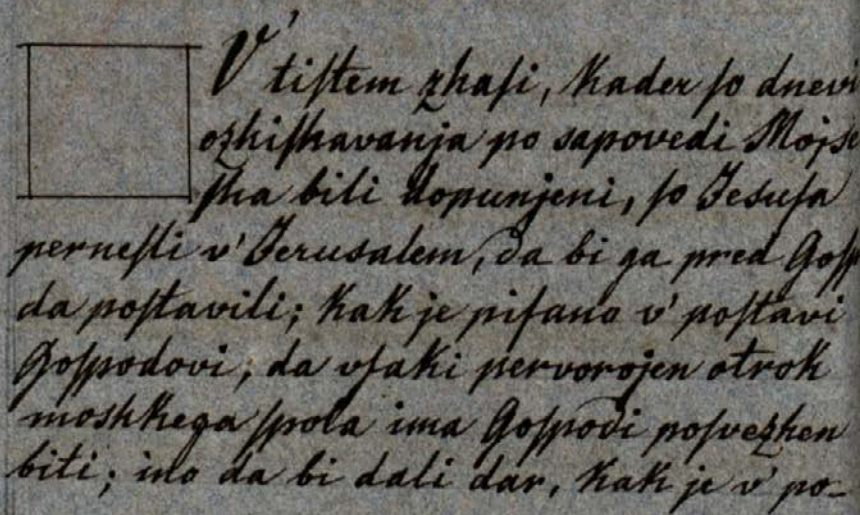 V' tiſtem zhaſi, kader ſo dnevi
ozhiſhavanja po sapovedi Mojse
ſha bili dopunjeni, ſo Jesuſa
perneſli v' Jerusalem, da bi ga pred Goſp
da poſtavili; kak je piſano v' poſtavi
Goſpodovi; da vſaki pervorojen otrok
moshkega ſpola ima Goſpodi poſvezhen
biti; ino da bi dali dar, kak je v' po-